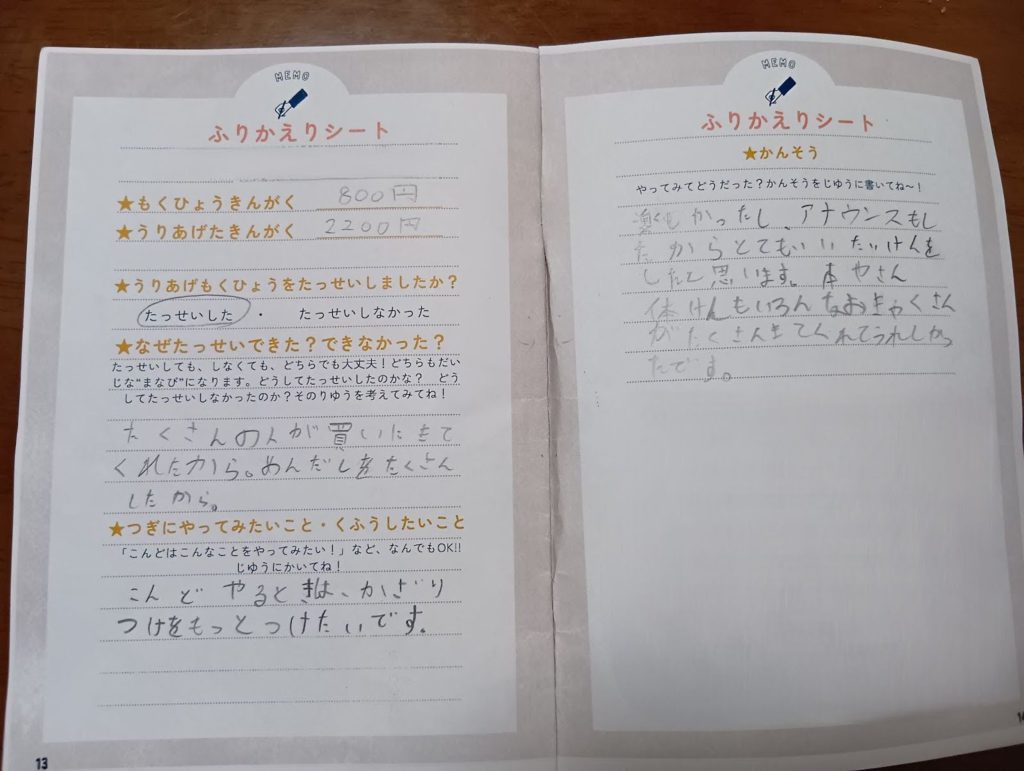 MEMO
ふりかえりシート
★もくひょうきんがく 800円
★うりあげたきんがく 2200円
★うりあげもくひょうをたっせいしましたか?
たっせいした ・ たっせいしなかった
★なぜたっせいできた?できなかった?
たっせいしても、しなくても、どちらでも大丈夫!どちらもだい
じな“まなび”になります。どうしてたっせいしたのかな? どう
してたっせいしなかったのか?そのりゆうを考えてみてね!
たくさんの人が買いにきて
くれたから。めんだしをたくさん
したから。
★つぎにやってみたいこと・くふうしたいこと
「こんどはこんなことをやってみたい!」など、なんでもOK!!
じゆうにかいてね!
こんどやるときは、かざり
つけをもっとつけたいです。
13
MEMO
ふりかえりシート
★かんそう
やってみてどうだった?かんそうをじゆうに書いてね〜!
かったし、アナウンスもし
たからとてもいいたいけんを
したと思います。本やさん
体けんもいろんなおきゃくさん
がたくさんきてくれてうれしかっ
たです。